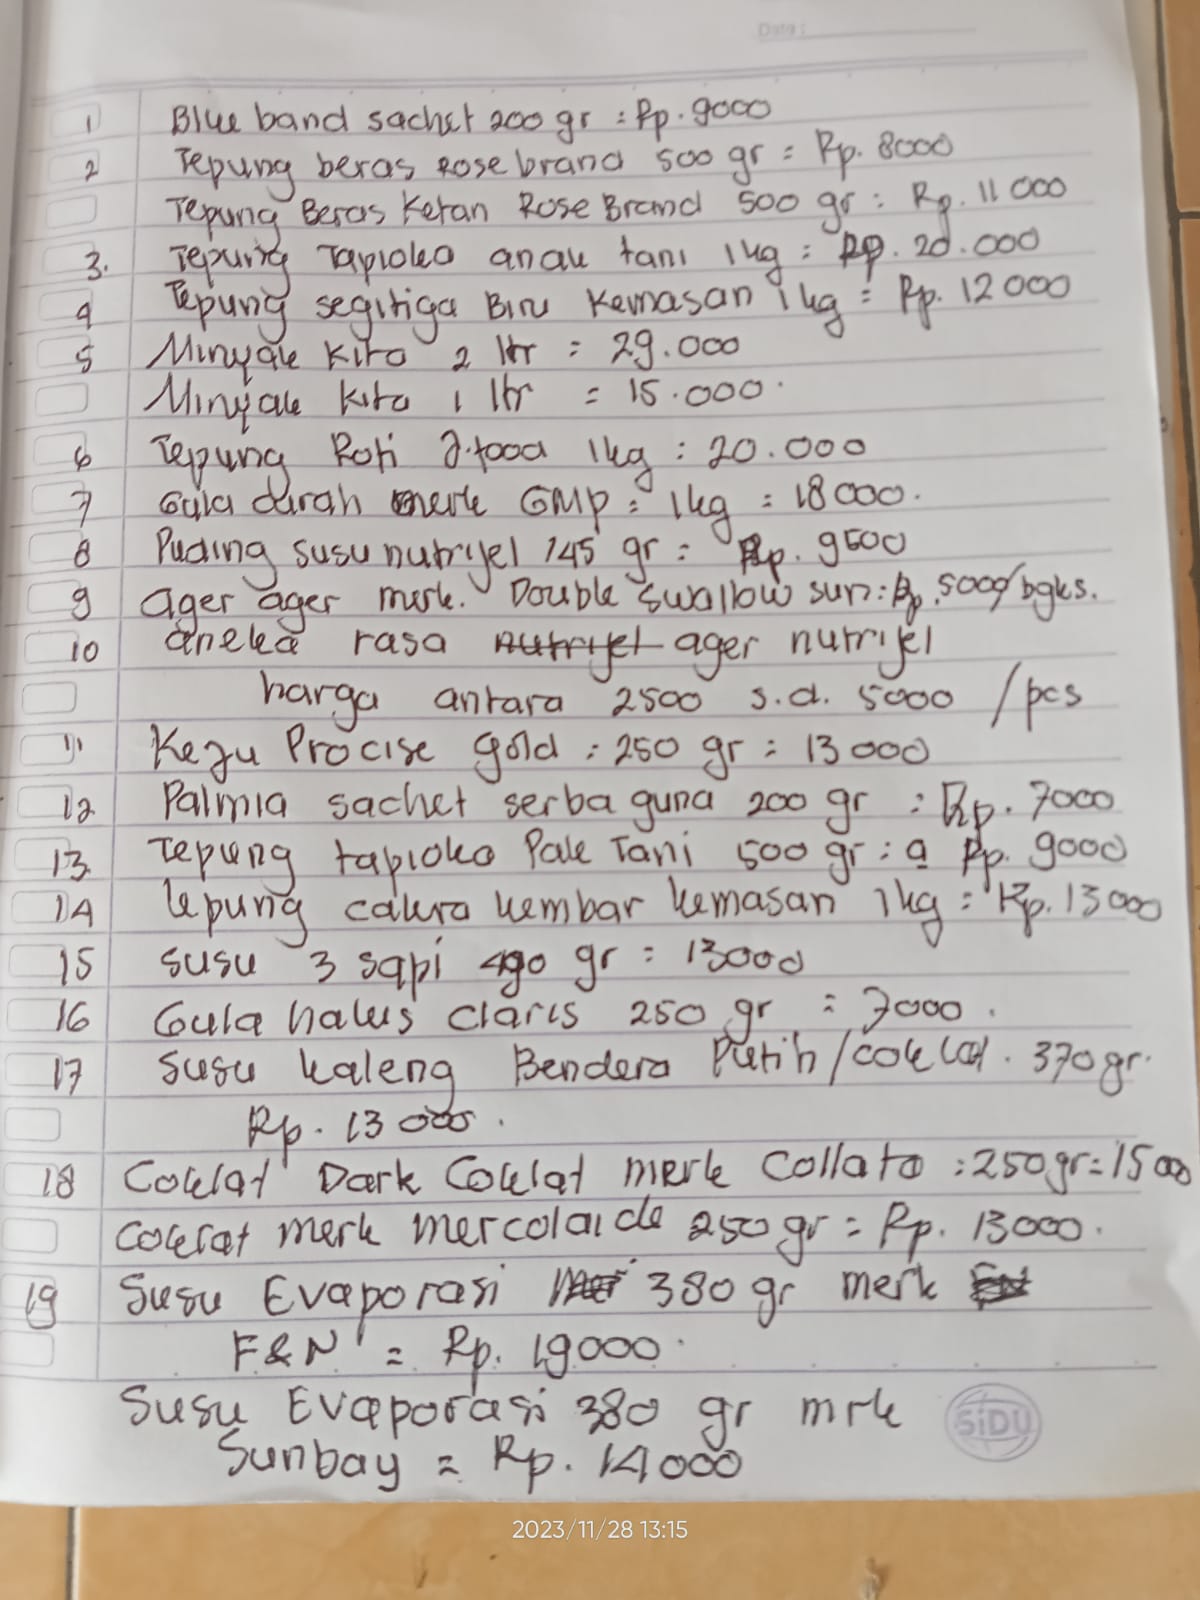 Date :
1 Blue band sachet 200 gr : Rp. 9000
2 Tepung beras Rose brand 500 gr = Rp. 8000
Tepung Beras Ketan Rose Brand 500 gr : Rp. 11 000
3. Tepung Tapioka anak tani 1 kg : Rp. 20.000
4 Tepung segitiga Biru Kemasan 1 kg = Rp. 12 000
5 Minyak Kita 2 ltr = 29.000
Minyak kita 1 ltr = 15.000.
6 Tepung Roti J.food 1kg : 20.000
7 Gula darah merk GMP = 1kg = 18 000.
8 Puding susu nutrijel 145 gr = Rp. 9500
9 ager ager merk. Double swallow sun : Rp. 5000/bgks.
10 aneka rasa nutrijel ager nutrijel
harga antara 2500 s.d. 5000 /pcs
11 Keju Procise gold : 250 gr = 13 000
12 Palmia sachet serba guna 200 gr : Rp. 7000
13 Tepung tapioka Pak Tani 500 gr : a Rp. 9000
14 tepung cakra kembar kemasan 1 kg = Rp. 13 000
15 susu 3 sapi 490 gr = 13000
16 Gula halus claris 250 gr = 7000.
17 susu kaleng Bendera Putih/coklat. 370gr.
Rp. 13 000.
18 Coklat Dark Coklat merk Collata : 250gr = 15 000
Coklat merk mercolaide 250 gr = Rp. 13000.
19 Susu Evaporasi 380 gr merk
F&N = Rp. 19000.
Susu Evaporasi 380 gr mrk
Sunbay = Rp. 14 000
SiDU
2023/11/28 13:15